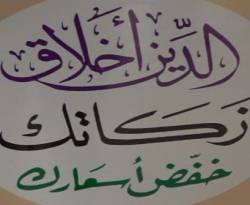 الدين أخلاق
زكاتك
خفّض أسعارك